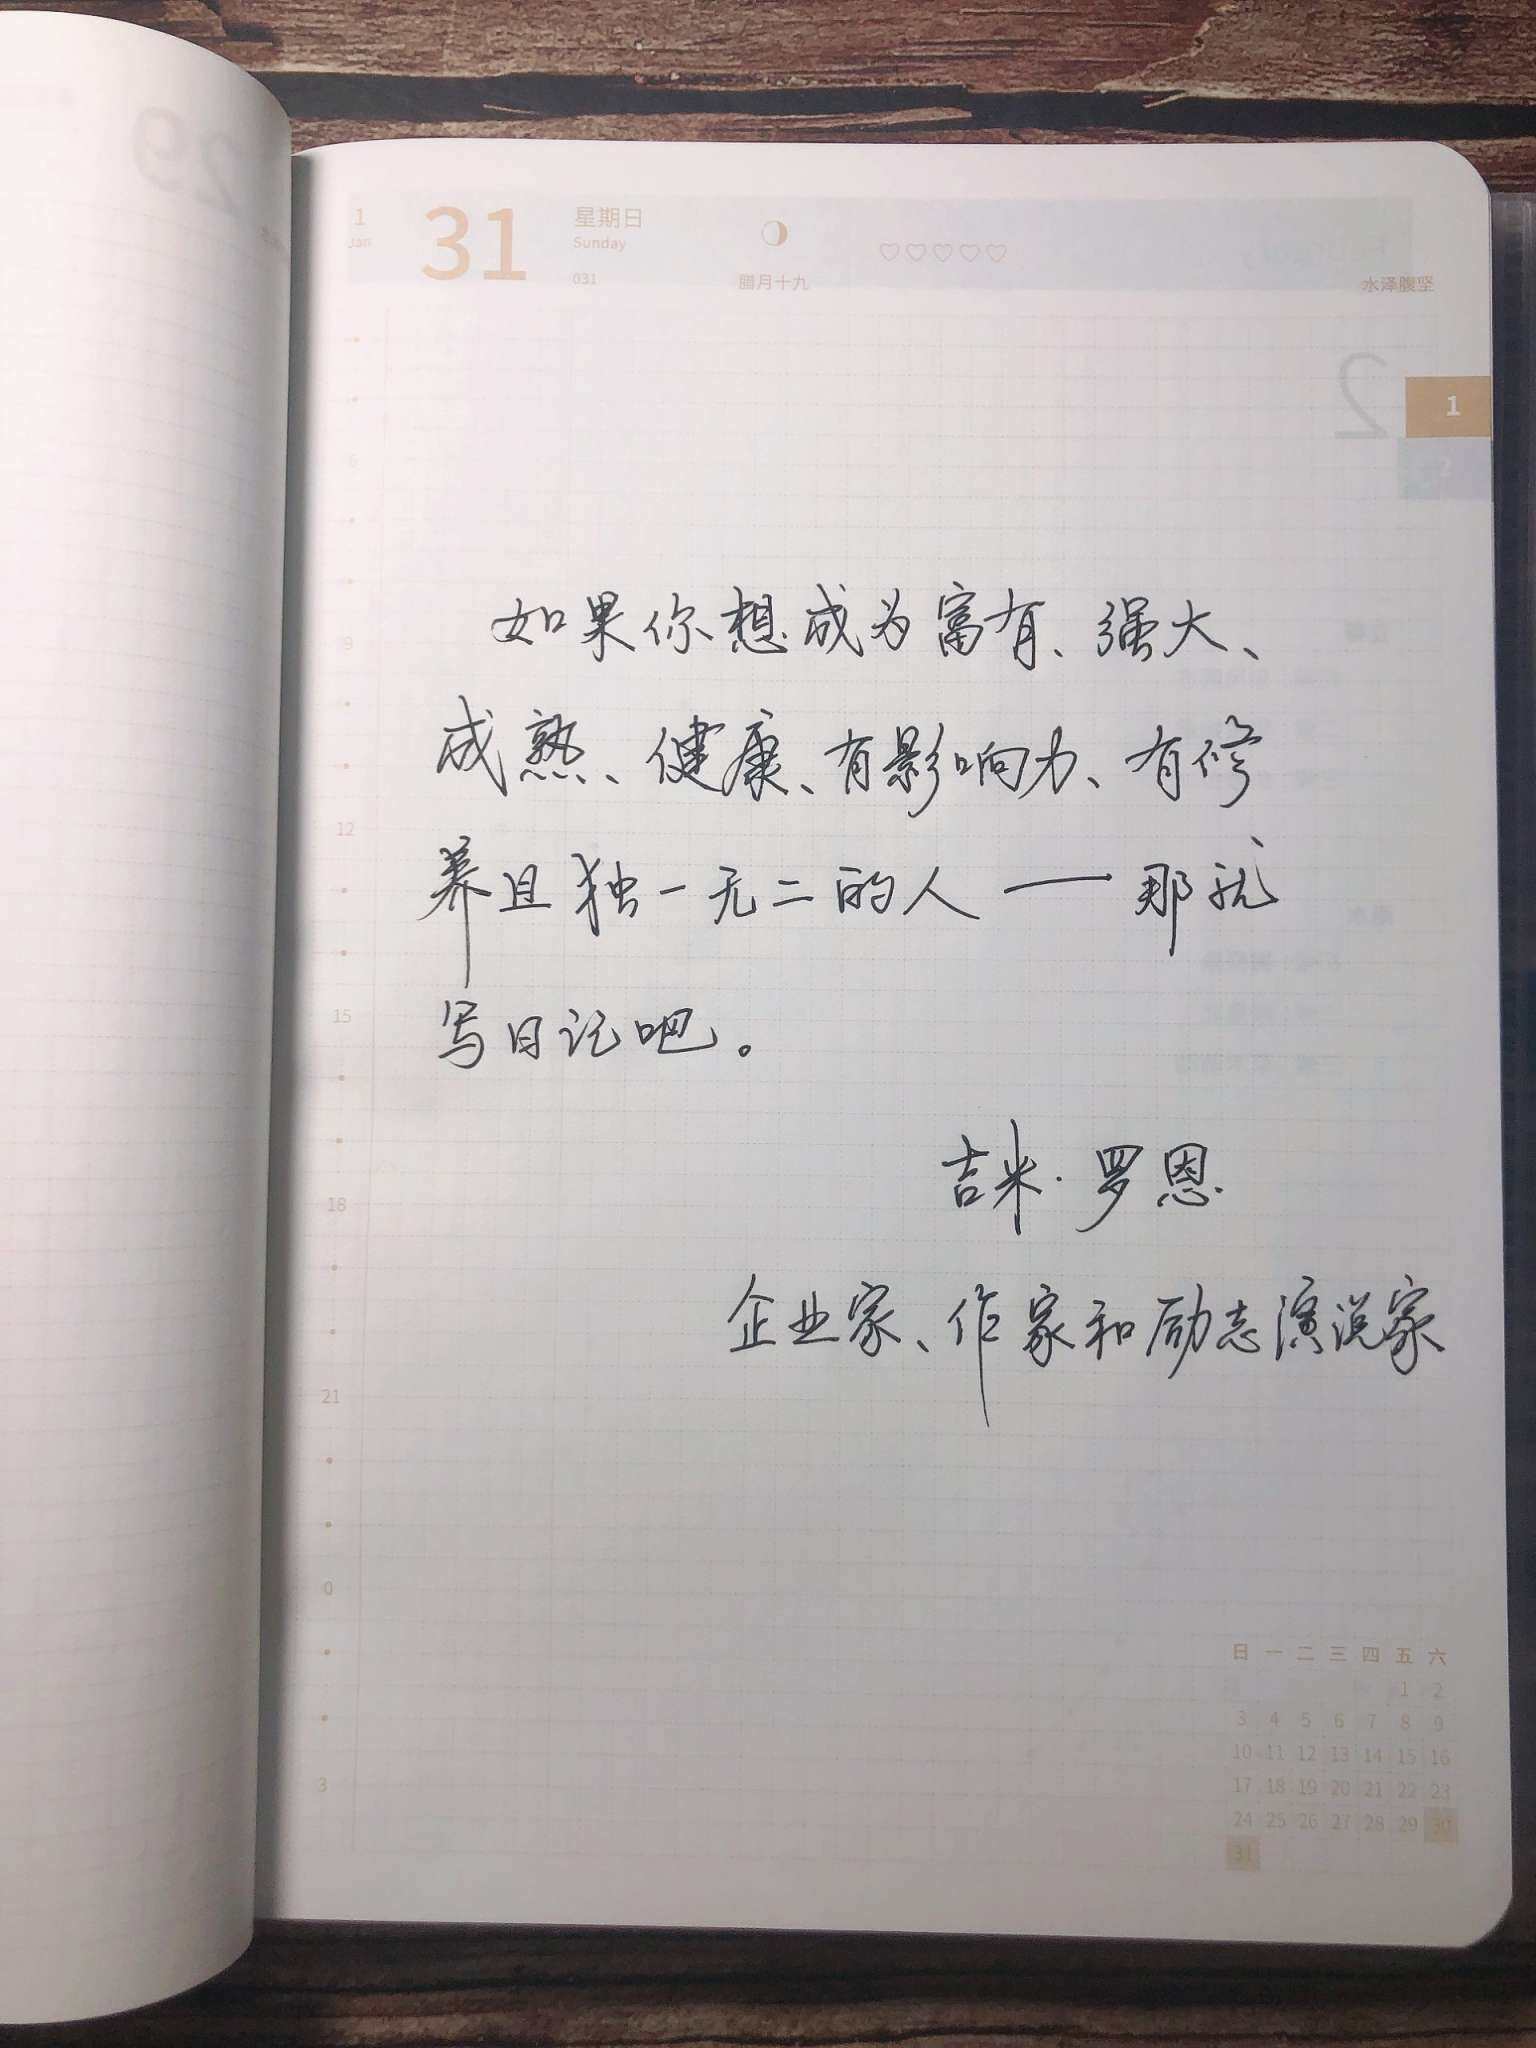 29
1
Jan
31
星期日
Sunday
031
腊月十九
♡♡♡♡♡
水泽腹坚
2
1
2
6
9
12
15
18
21
0
3
如果你想成为富有、强大、
成熟、健康、有影响力、有修
养且独一无二的人——那就
写日记吧。
吉米·罗恩
企业家、作家和励志演说家
日 一 二 三 四 五 六
1 2
3 4 5 6 7 8 9
10 11 12 13 14 15 16
17 18 19 20 21 22 23
24 25 26 27 28 29 30
31